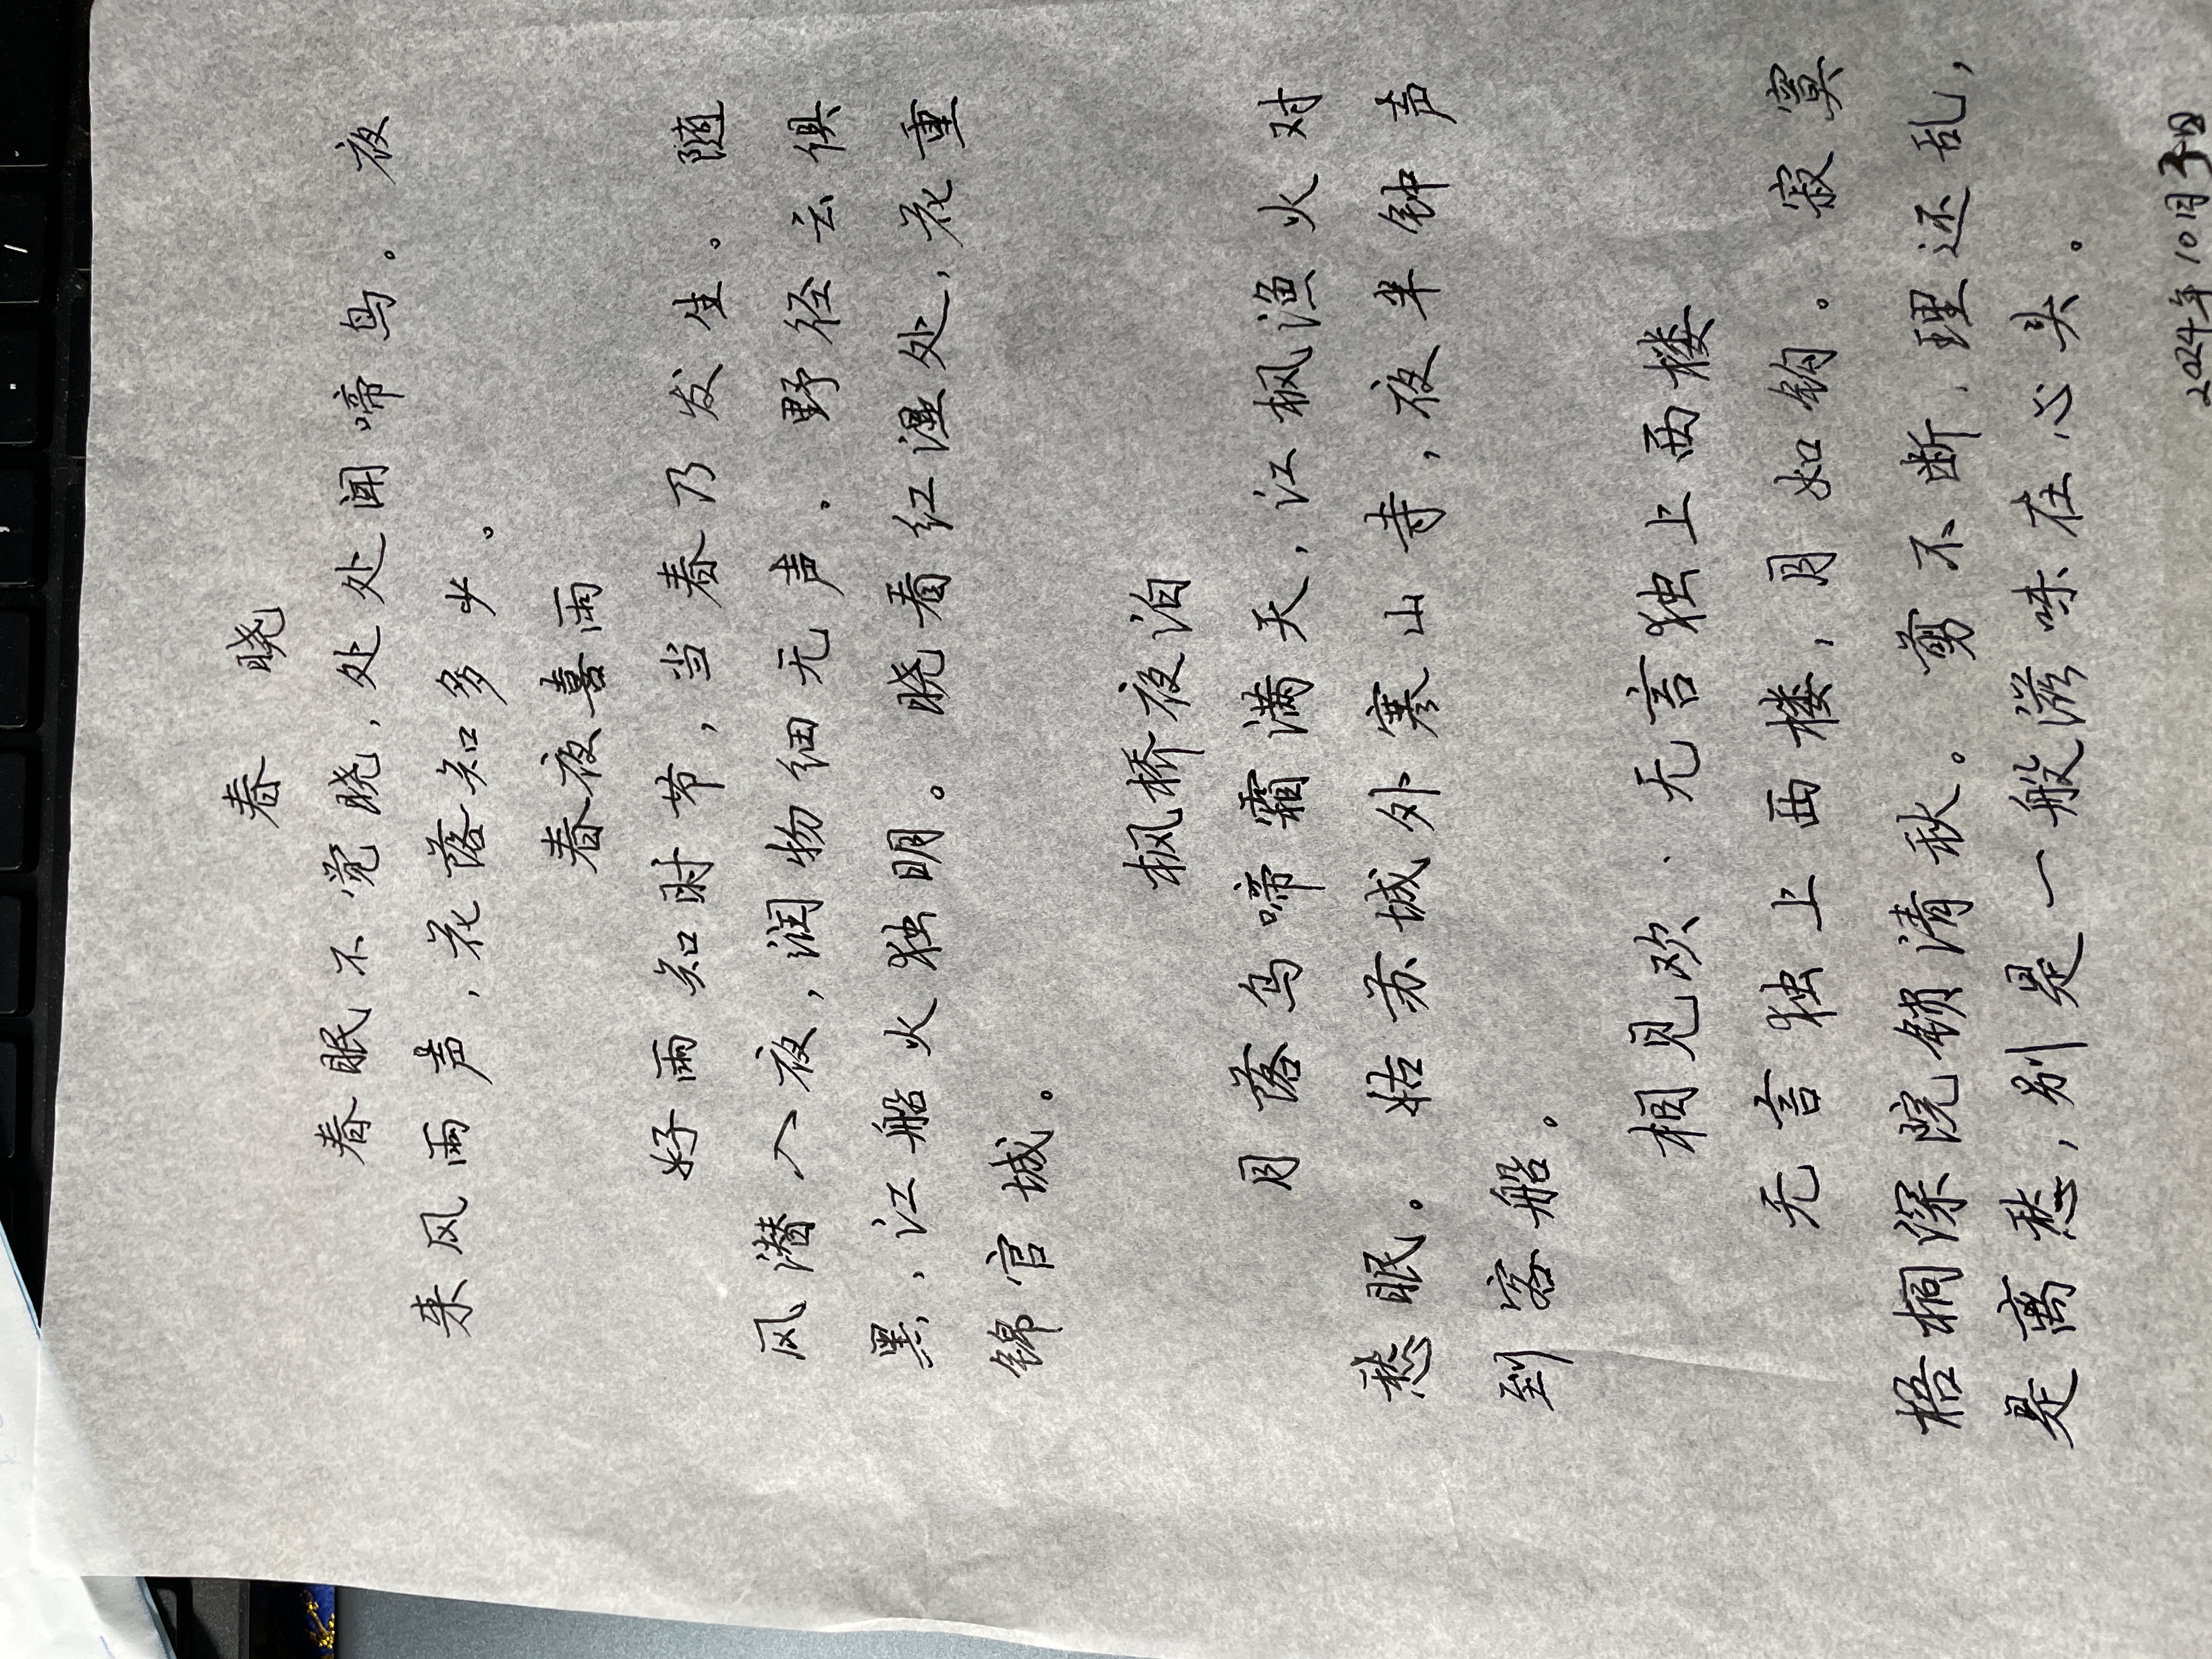 春 晓
春眠不觉晓，处处闻啼鸟。夜
来风雨声，花落知多少。
春夜喜雨
好雨知时节，当春乃发生。随
风潜入夜，润物细无声。野径云俱
黑，江船火独明。晓看红湿处，花重
锦官城。
枫桥夜泊
月落乌啼霜满天，江枫渔火对
愁眠。姑苏城外寒山寺，夜半钟声
到客船。
相见欢·无言独上西楼
无言独上西楼，月如钩。寂寞
梧桐深院锁清秋。剪不断，理还乱，
是离愁，别是一般滋味在心头。
2024年10月3日